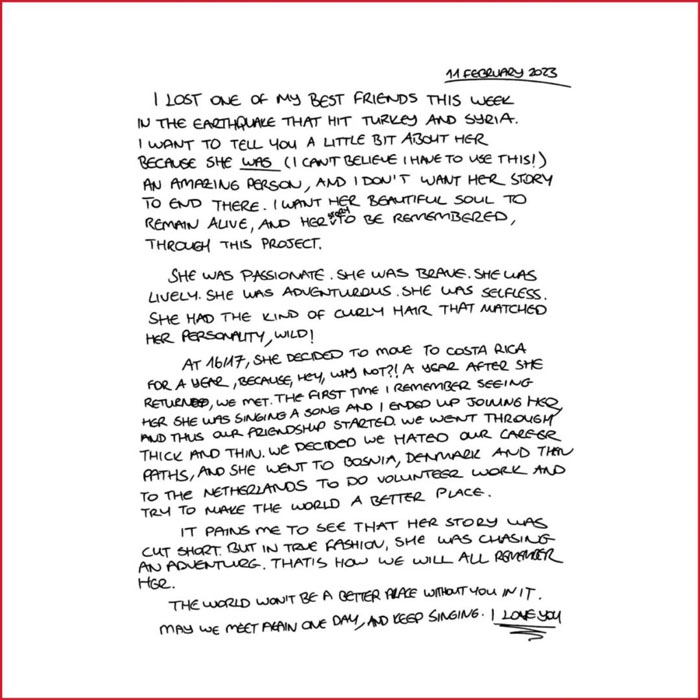 11 FEBRUARY 2023
I LOST ONE OF MY BEST FRIENDS THIS WEEK
IN THE EARTHQUAKE THAT HIT TURKEY AND SYRIA.
I WANT TO TELL YOU A LITTLE BIT ABOUT HER
BECAUSE SHE WAS (I CAN'T BELIEVE I HAVE TO USE THIS!)
AN AMAZING PERSON, AND I DON'T WANT HER STORY
TO END THERE. I WANT HER BEAUTIFUL SOUL TO
REMAIN ALIVE, AND HER STORY TO BE REMEMBERED,
THROUGH THIS PROJECT.
SHE WAS PASSIONATE. SHE WAS BRAVE. SHE WAS
LIVELY. SHE WAS ADVENTUROUS. SHE WAS SELFLESS.
SHE HAD THE KIND OF CURLY HAIR THAT MATCHED
HER PERSONALITY, WILD!
AT 16/17, SHE DECIDED TO MOVE TO COSTA RICA
FOR A YEAR, BECAUSE, HEY, WHY NOT?! A YEAR AFTER SHE
RETURNED, WE MET. THE FIRST TIME I REMEMBER SEEING
HER SHE WAS SINGING A SONG AND I ENDED UP JOINING HER,
AND THUS OUR FRIENDSHIP STARTED. WE WENT THROUGH
THICK AND THIN. WE DECIDED WE HATED OUR CAREER
PATHS, AND SHE WENT TO BOSNIA, DENMARK AND THEN
TO THE NETHERLANDS TO DO VOLUNTEER WORK AND
TRY TO MAKE THE WORLD A BETTER PLACE.
IT PAINS ME TO SEE THAT HER STORY WAS
CUT SHORT. BUT IN TRUE FASHION, SHE WAS CHASING
AN ADVENTURE. THAT'S HOW WE WILL ALL REMEMBER
HER.
THE WORLD WON'T BE A BETTER PLACE WITHOUT YOU IN IT.
MAY WE MEET AGAIN ONE DAY, AND KEEP SINGING. I LOVE YOU